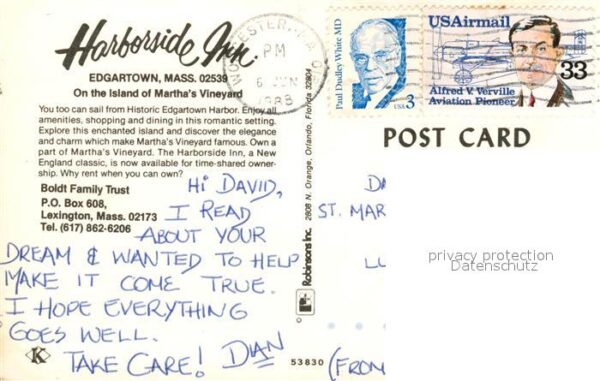 Harborside Inn
EDGARTOWN, MASS. 02539
On the Island of Martha's Vineyard
You too can sail from Historic Edgartown Harbor. Enjoy all
amenities, shopping and dining in this romantic setting.
Explore this enchanted island and discover the elegance
and charm which make Martha's Vineyard famous. Own a
part of Martha's Vineyard. The Harborside Inn, a New
England classic, is now available for time-shared owner-
ship. Why rent when you can own?
Boldt Family Trust
P.O. Box 608,
Lexington, Mass. 02173
Tel. (617) 862-6206
HI DAVID,
I READ
ABOUT YOUR
DREAM & WANTED TO HELP
MAKE IT COME TRUE.
I HOPE EVERYTHING
GOES WELL.
TAKE CARE! DIAN
K
PM
6 JUN
Paul Dudley White MD
USA 3
USAirmail
33
Alfred V. Verville
Aviation Pioneer
POST CARD
Robinsons Inc. 2808 N. Orange, Orlando, Florida 32804
53830
ST. MAR
LU
(FROM
privacy protection
Datenschutz